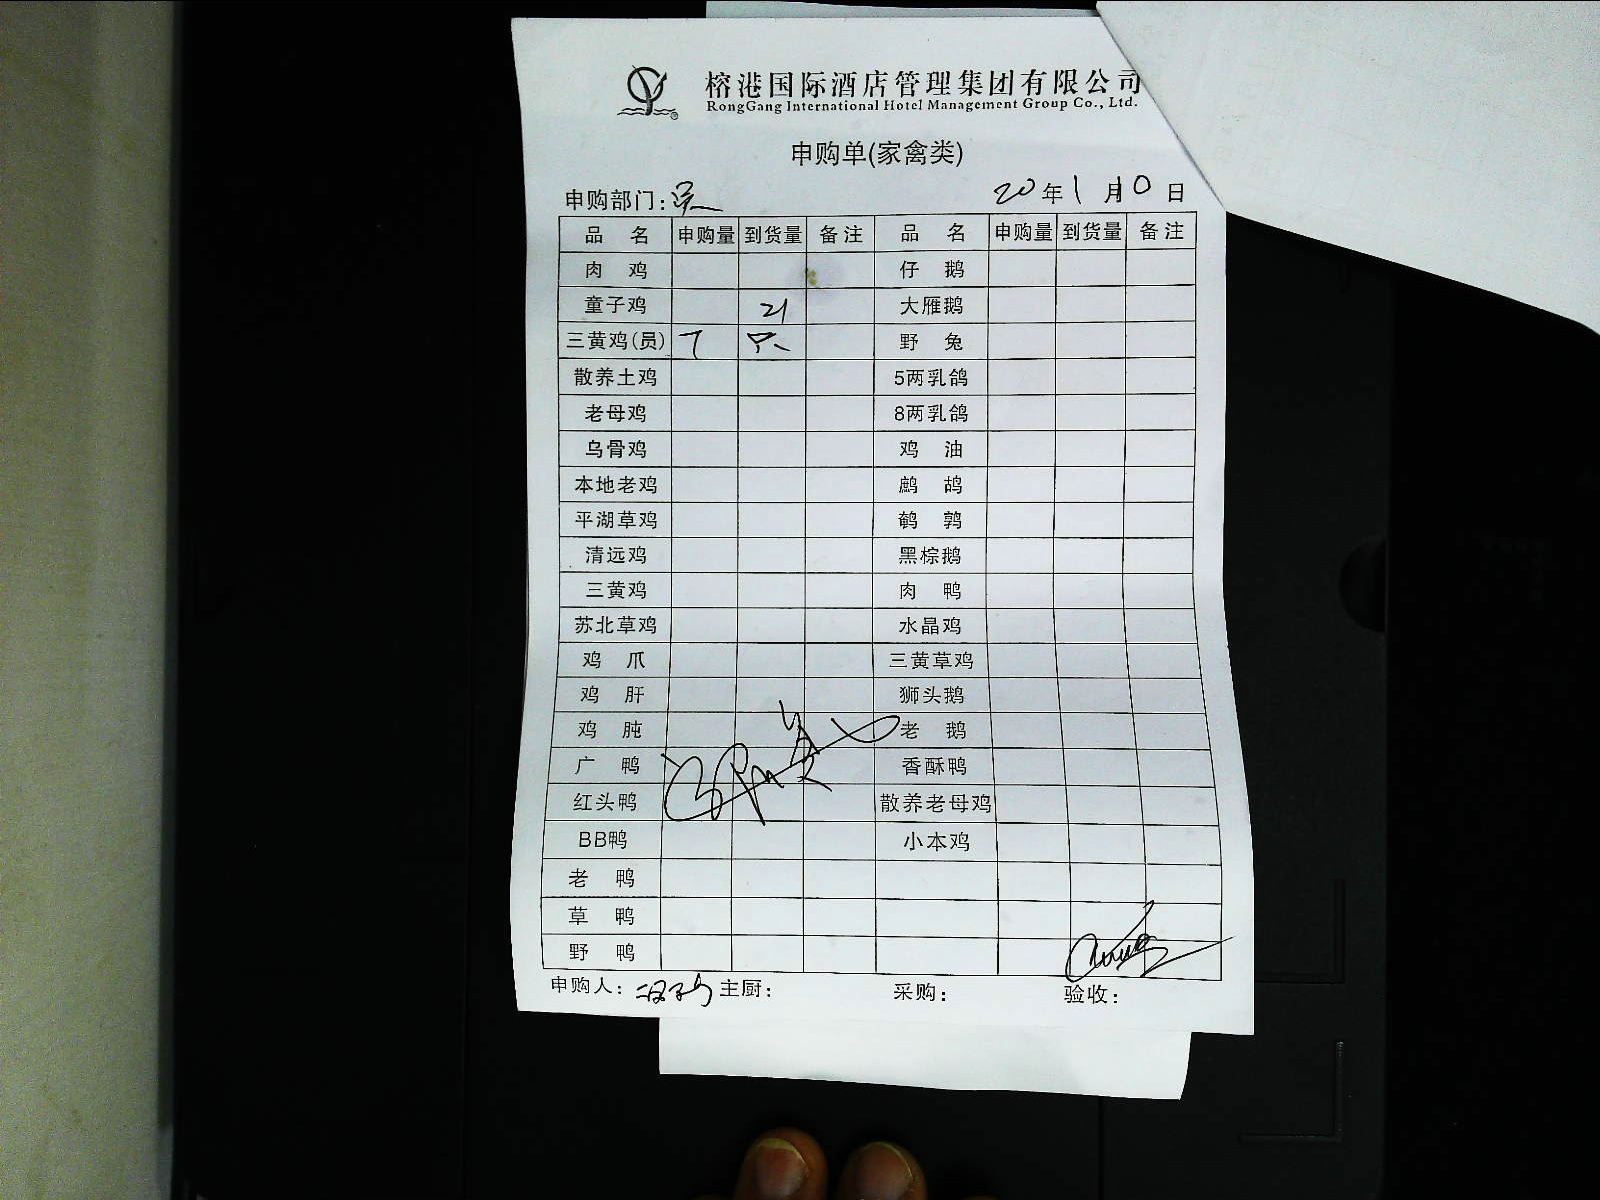 榕港国际酒店管理集团有限公司
RongGang International Hotel Management Group Co., Ltd.
申购单(家禽类)
申购部门: 20年1月0日
品名 申购量 到货量 备注 品名 申购量 到货量 备注
肉鸡 仔鹅
童子鸡 21 大雁鹅
三黄鸡(员) 7 只 野兔
散养土鸡 5两乳鸽
老母鸡 8两乳鸽
乌骨鸡 鸡油
本地老鸡 鹧鸪
平湖草鸡 鹌鹑
清远鸡 黑棕鹅
三黄鸡 肉鸭
苏北草鸡 水晶鸡
鸡爪 三黄草鸡
鸡肝 狮头鹅
鸡肫 老鹅
广鸭 香酥鸭
红头鸭 散养老母鸡
BB鸭 小本鸡
老鸭
草鸭
野鸭
申购人: 主厨: 采购: 验收: